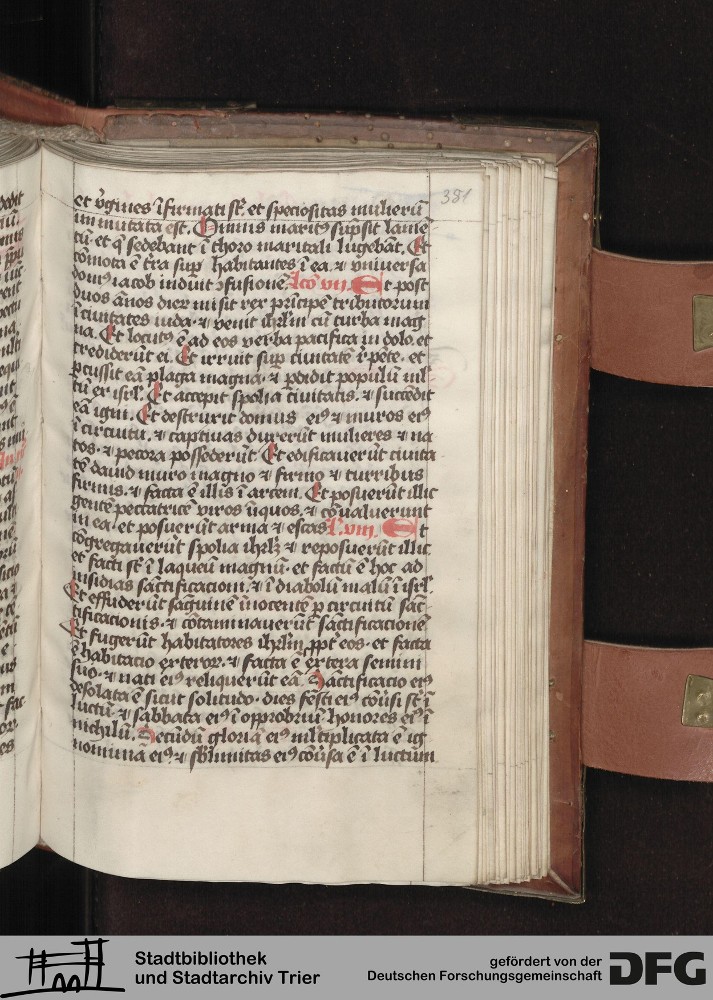 381
et v̾gines ĩfirmati sť. et speciositas mulierũ
im̃utata est. Omnis marit⁹ sũpsit lamẽ
tũ et q̃ sedebant ĩ thoro maritali lugebãt. Et
cõmota ẽ t̃ra sup̱ habitantes ĩ ea. ⁊ vniuersa
dom⁹ iacob induit ↄfusionẽ. lco᷒ vii. Et post
duos ãnos dier̃ misit rex prĩcipẽ tributorum
ĩ ciuitates iuda. ⁊ venit ihrl̃m cũ turba mag
na. Et locut⁹ ẽ ad eos verba pacifica in dolo. et
crediderũt ei. Et irruit sup̱ ciuitatẽ r̃pẽte. et
ꝑcussit eã plaga magna. ⁊ ꝑdidit populũ ml̃
tũ ex isrl̃. Et accepit spolia ciuitatis. ⁊ succẽdit
eã igni. Et destruxit domus ei⁹ ⁊ muros ei⁹
ĩ circuitu. ⁊ captiuas duxerũt mulieres ⁊ na
tos. ⁊ pecora possederũt. Et edificauerũt ciuita
tẽ dauid muro magno ⁊ firmo ⁊ turribus
firmis. ⁊ facta ẽ illis ĩ arcem. Et posuerũt illic
gentẽ peccatricẽ viros ĩiquos. ⁊ cõualuerunt
in ea. et posuerũt arma ⁊ escas l̃. viii. Et
cõgregauerũt spolia ihrl̃z ⁊ reposuerũt illic
et facti sť ĩ laqueũ magnũ. et factũ ẽ hoc ad
insidias sãctificacioni. ⁊ ĩ diabolũ malũ ĩ isrl̃.
Et effuderũt sãguinẽ ĩnocentẽ ꝑ circuitũ sãc
tificacionis. ⁊ cõtaminauerũt sãctificacionẽ
Et fugerũt habitatores ihrl̃m ꝓpt̾ eos. et facta
ẽ habitacio exteroꝝ. ⁊ facta ẽ extera semini
suo. ⁊ nati ei⁹ reliquerũt eã. Sãctificacio ei⁹
desolata ẽ sicut solitudo. dies festi ei⁹ cõu̾si sť ĩ
luctũ. ⁊ sabbata ei⁹ ĩ opprobriũ. honores ei⁹ ĩ
nichilũ. Secũdũ gloriã ei⁹ ml̃tiplicata ẽ ig
nominia ei⁹. ⁊ sb̾limitas ei⁹ cõu̾sa ẽ ĩ luctum
Stadtbibliothek
und Stadtarchiv Trier
gefördert von der
Deutschen Forschungsgemeinschaft DFG